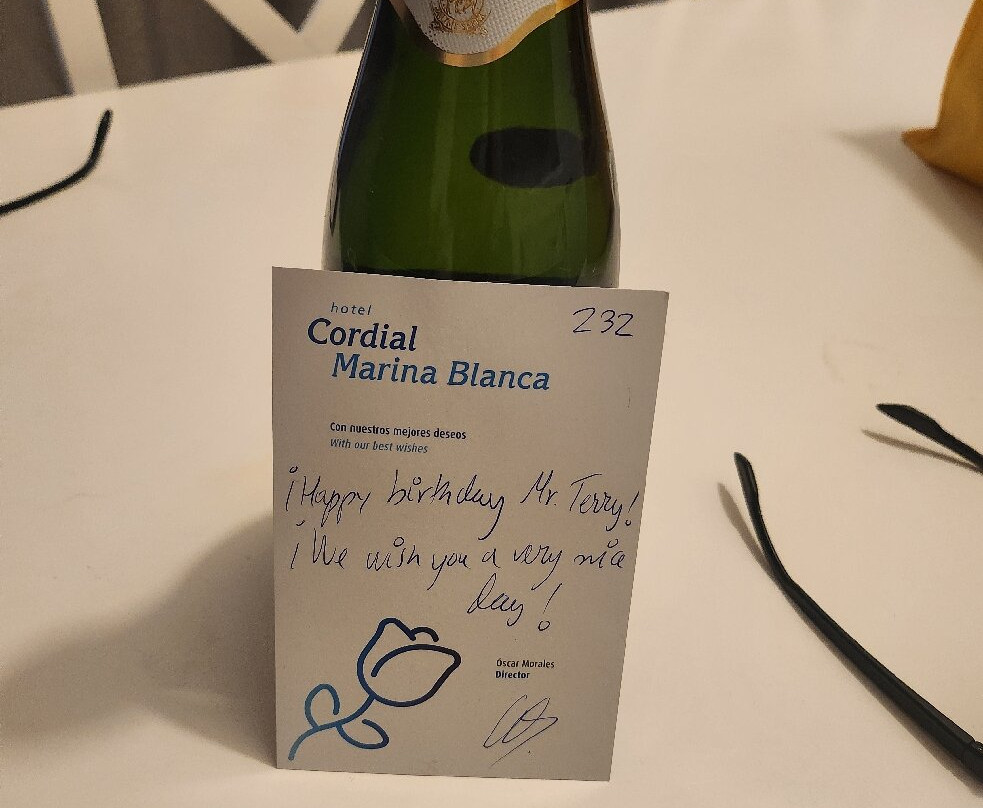 hotel
Cordial
Marina Blanca
232
Con nuestros mejores deseos
With our best wishes
¡Happy birthday Mr. Terry!
¡We wish you a very nice
day!
Óscar Morales
Director